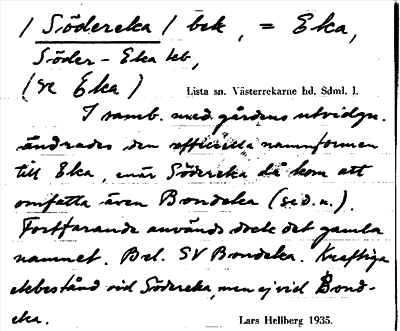 / Södereka / bek, = Eka,
Söder-Eka kb,
(se Eka)
Lista sn. Västerrekarne hd. Sdml. l.
I samb. med gårdens utvidgn.
ändrades den officiella namnformen
till Eka, enär Södereka då kom att
omfatta även Bondeka (se d. o.).
Fortfarande används dock det gamla
namnet. Bel. SV Bondeka. Kraftiga
ekbestånd vid Södereka, men ej vid Bond-
eka.
Lars Hellberg 1935.